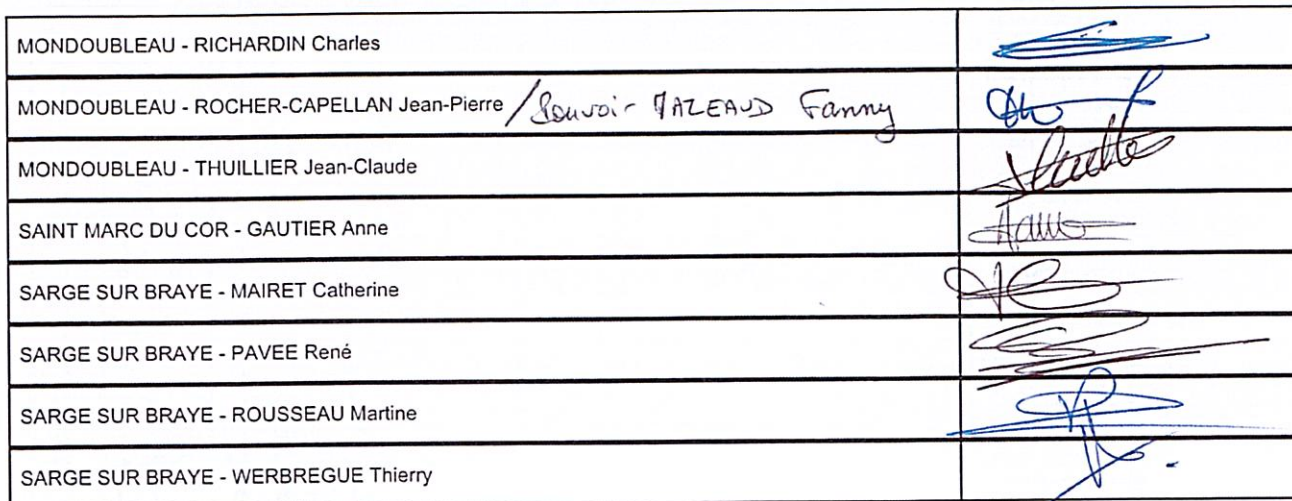 MONDOUBLEAU - RICHARDIN Charles
MONDOUBLEAU - ROCHER-CAPELLAN Jean-Pierre / Pouvoir MAZEAUD Fanny
MONDOUBLEAU - THUILLIER Jean-Claude
SAINT MARC DU COR - GAUTIER Anne
SARGE SUR BRAYE - MAIRET Catherine
SARGE SUR BRAYE - PAVEE René
SARGE SUR BRAYE - ROUSSEAU Martine
SARGE SUR BRAYE - WERBREGUE Thierry